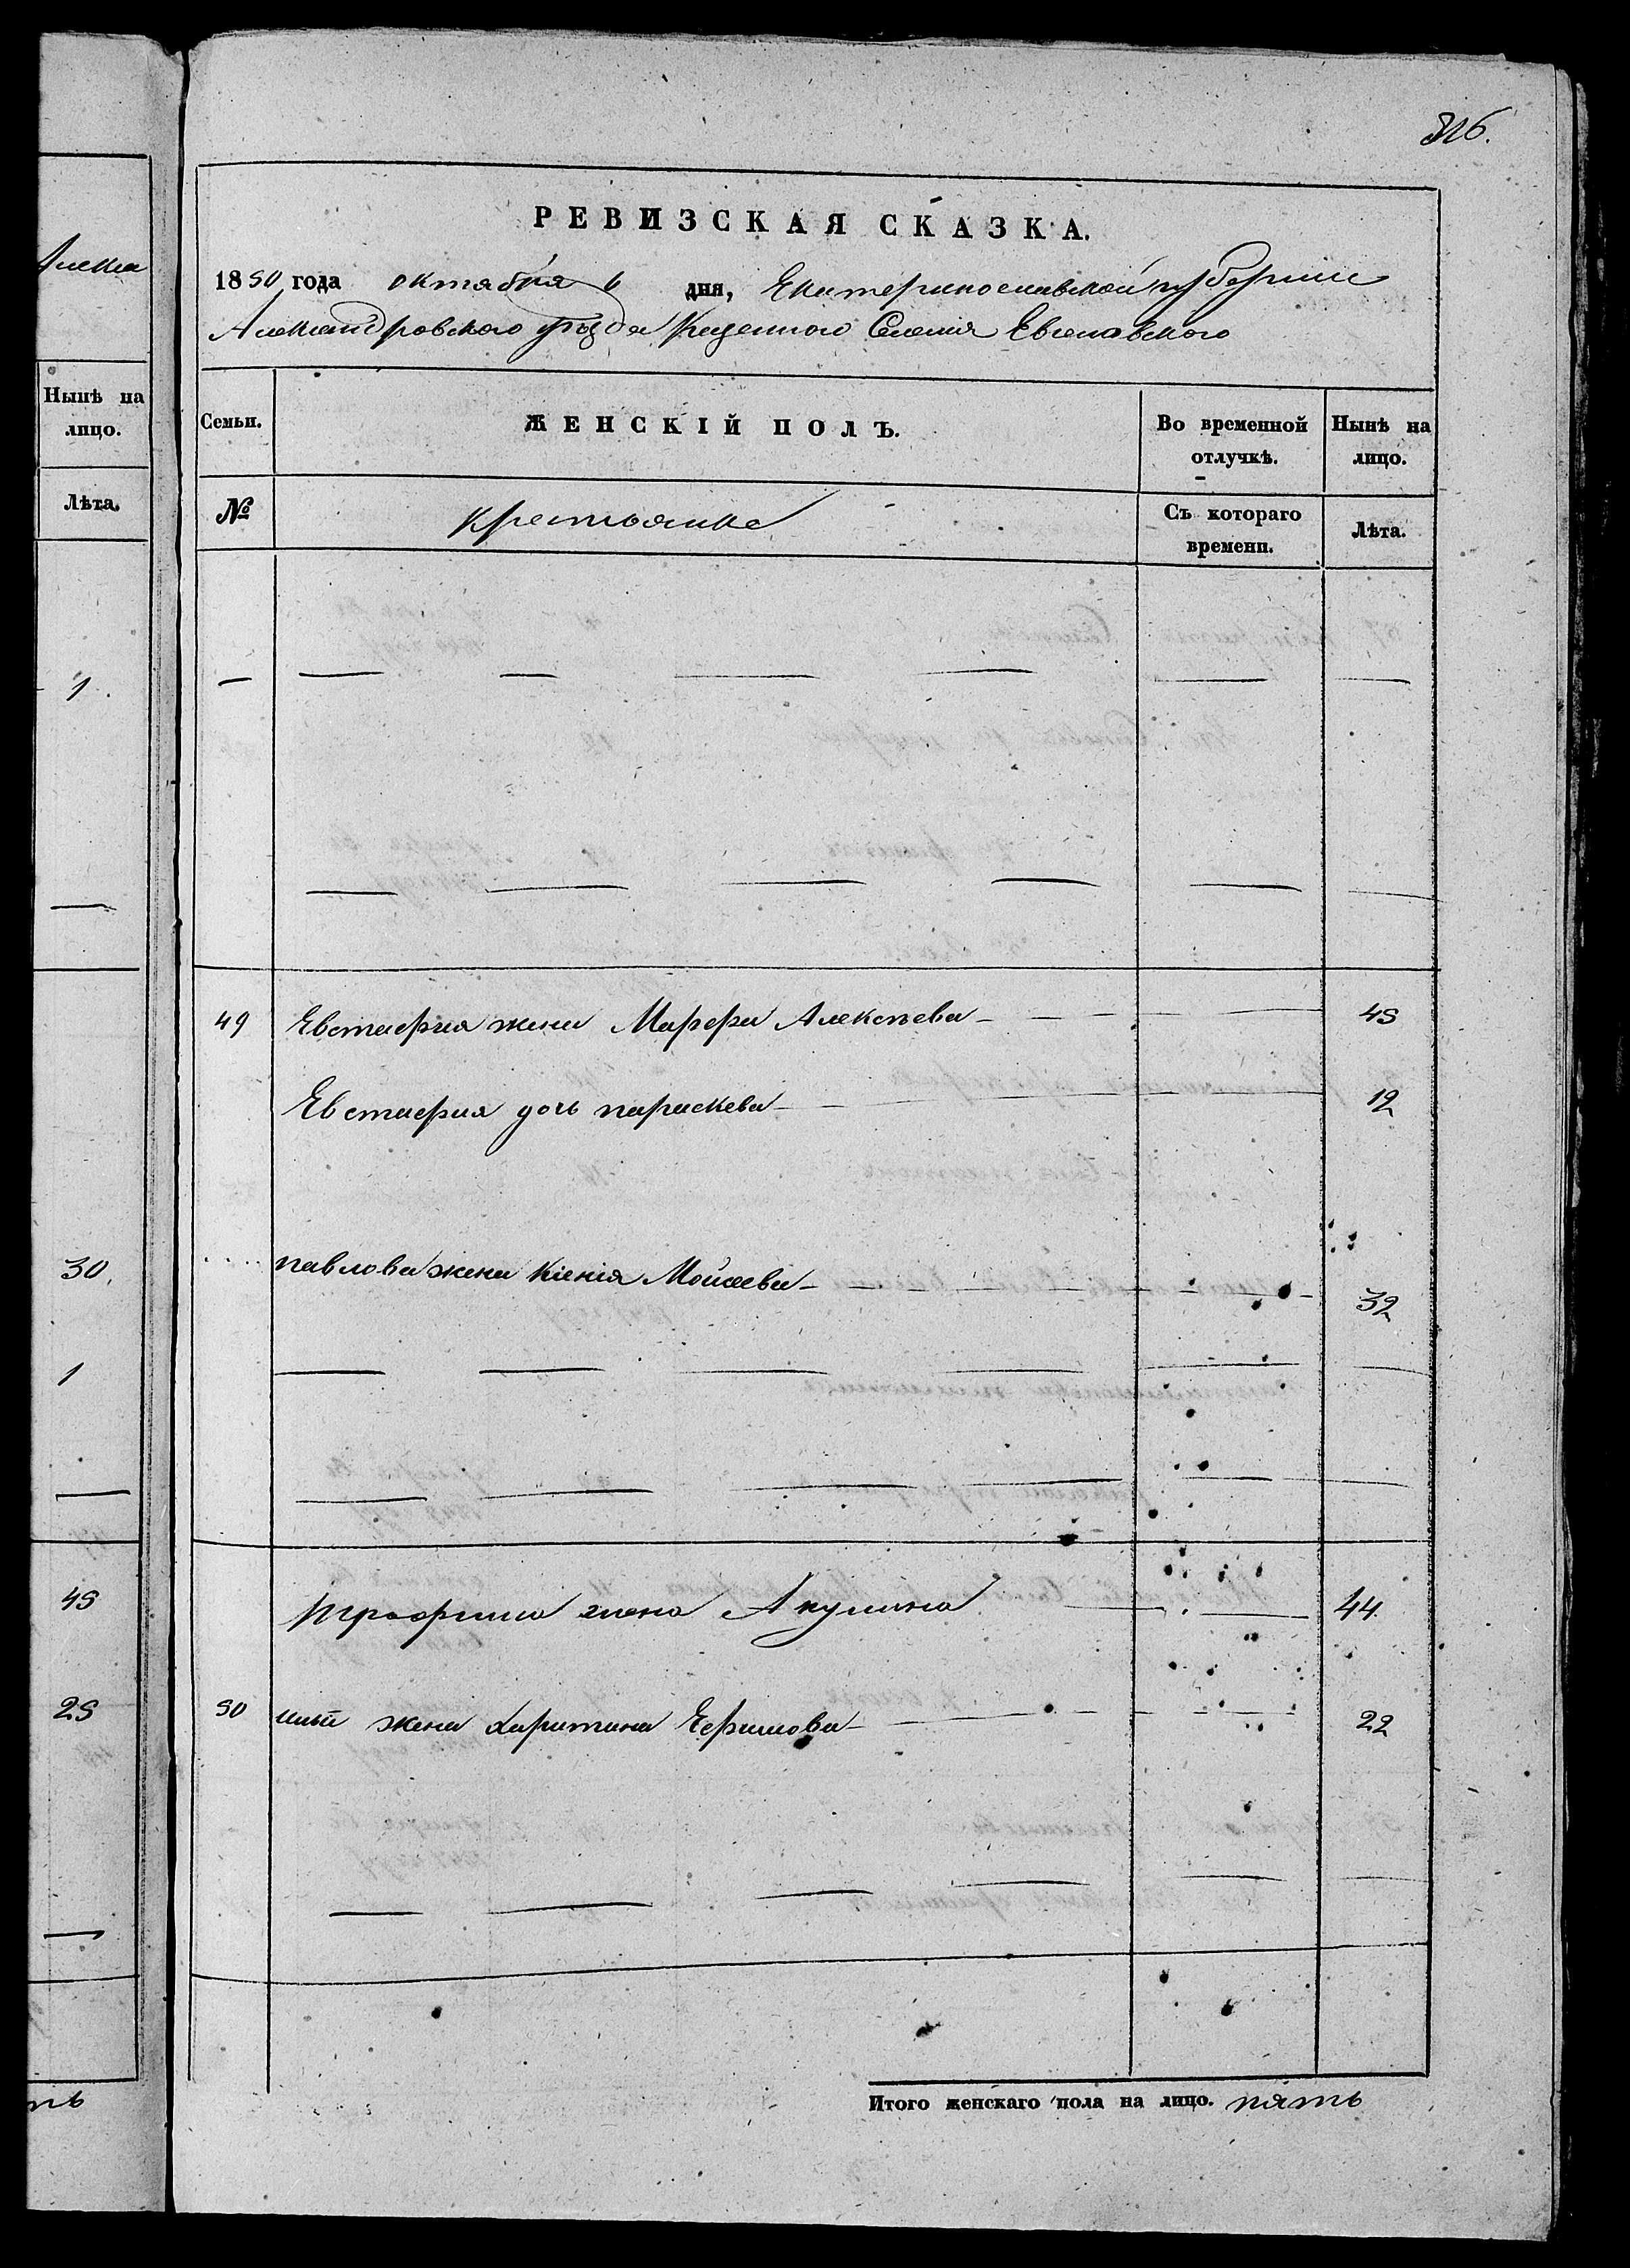 Алекса
Нынѣ на
лицо.
Лѣта.
1
30.
1
45
25
ть
316.
РЕВИЗСКАЯ СКАЗКА.
1850 года октября 6 дня, Екатеринославской губернии
Александровского уѣзда Казенного Селения
Семьи.
ЖЕНСКІЙ ПОЛЪ.
Во временной
отлучкѣ.
Нынѣ на
лицо.
№
крестьянке
Съ котораго
времени.
Лѣта.
49 Евстафия жена Марфа Алексѣева 45
Евстафия дочь параскева 12
павлова жена Ксения Моисеева 32
трофима жена Акулина 44
50 ильи жена Харитина Ефимова 22
Итого женскаго пола на лицо. пять